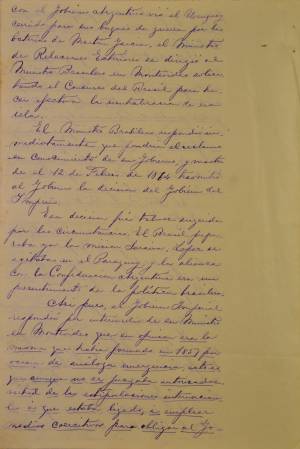 con el Gobierno Argentino vió el Uruguay
cerrado para sus buques de guerra por las
baterías de Martin Garcia, el Ministro
de Relaciones Exteriores se dirigió al
Ministro Brasilero en Montevideo solici-
tando el Concurso del Brasil para ha-
cer efectiva la neutralizacion de esa
isla.
El Ministro Brasilero respondió in-
mediatamente que pondria el reclamo
en Conocimiento de su Gobierno, y
de el 12 de Febro. de 1864 trasmitió
al Gobierno la decision del Gobierno del
Imperio.
Esa decision fué talvez sugerida
por las circunstancias. El Brasil prepa-
raba ya la mision Saraiva, Lopez se
agitaba en el Paraguay, y la alianza
con la Confederacion Argentina era un
presentimiento de la política brasilera.
Asi pues, el Gobierno Imperial
respondió por intermedio de su Ministro
en Montevideo que su opinion era la
misma que habia formado en 1857 por
ocasion de análoga emergencia, esto es
que aunque no se juzgaba autorizado en
virtud de las estipulaciones internaciona-
les á que estaba ligado, á emplear
medios coercitivos para obligar al Go-